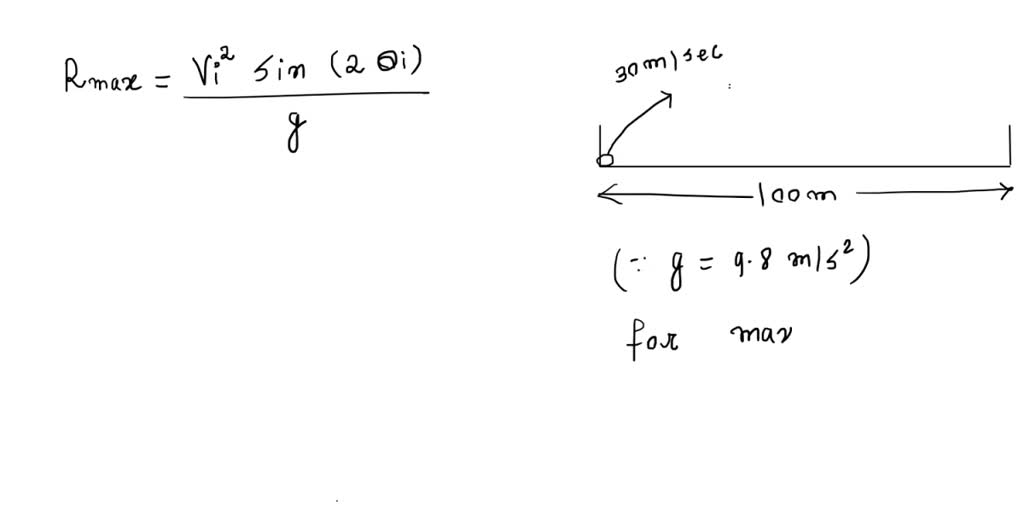 Rmax = Vi² sin (2 θi) / g
30m/sec
100m
(∵ g = 9.8 m/s²)
for max